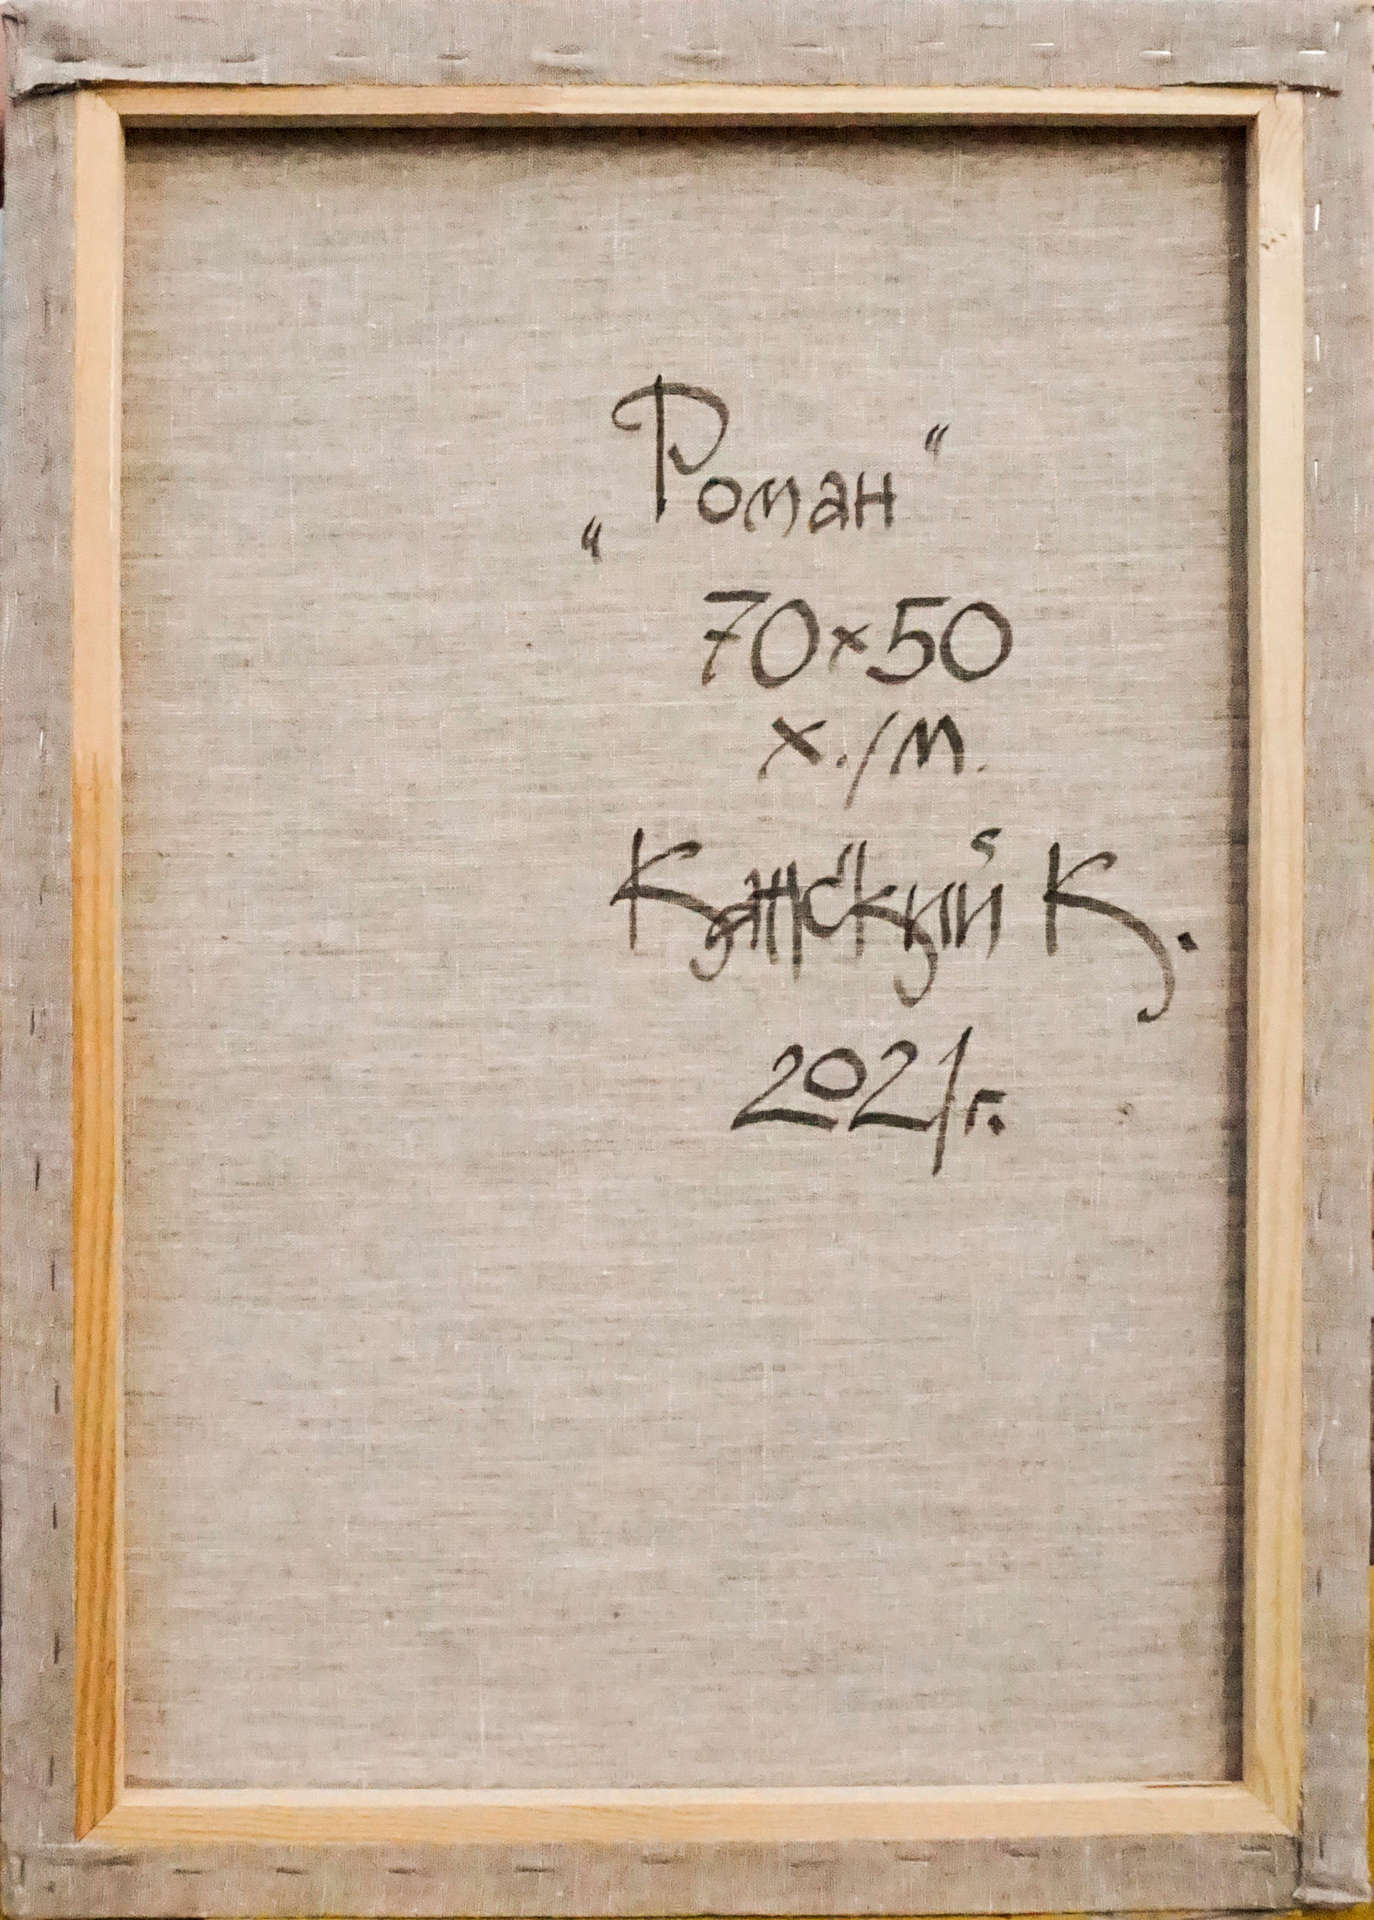 „Роман“
70×50
х./м.
Канский К.
2021г.